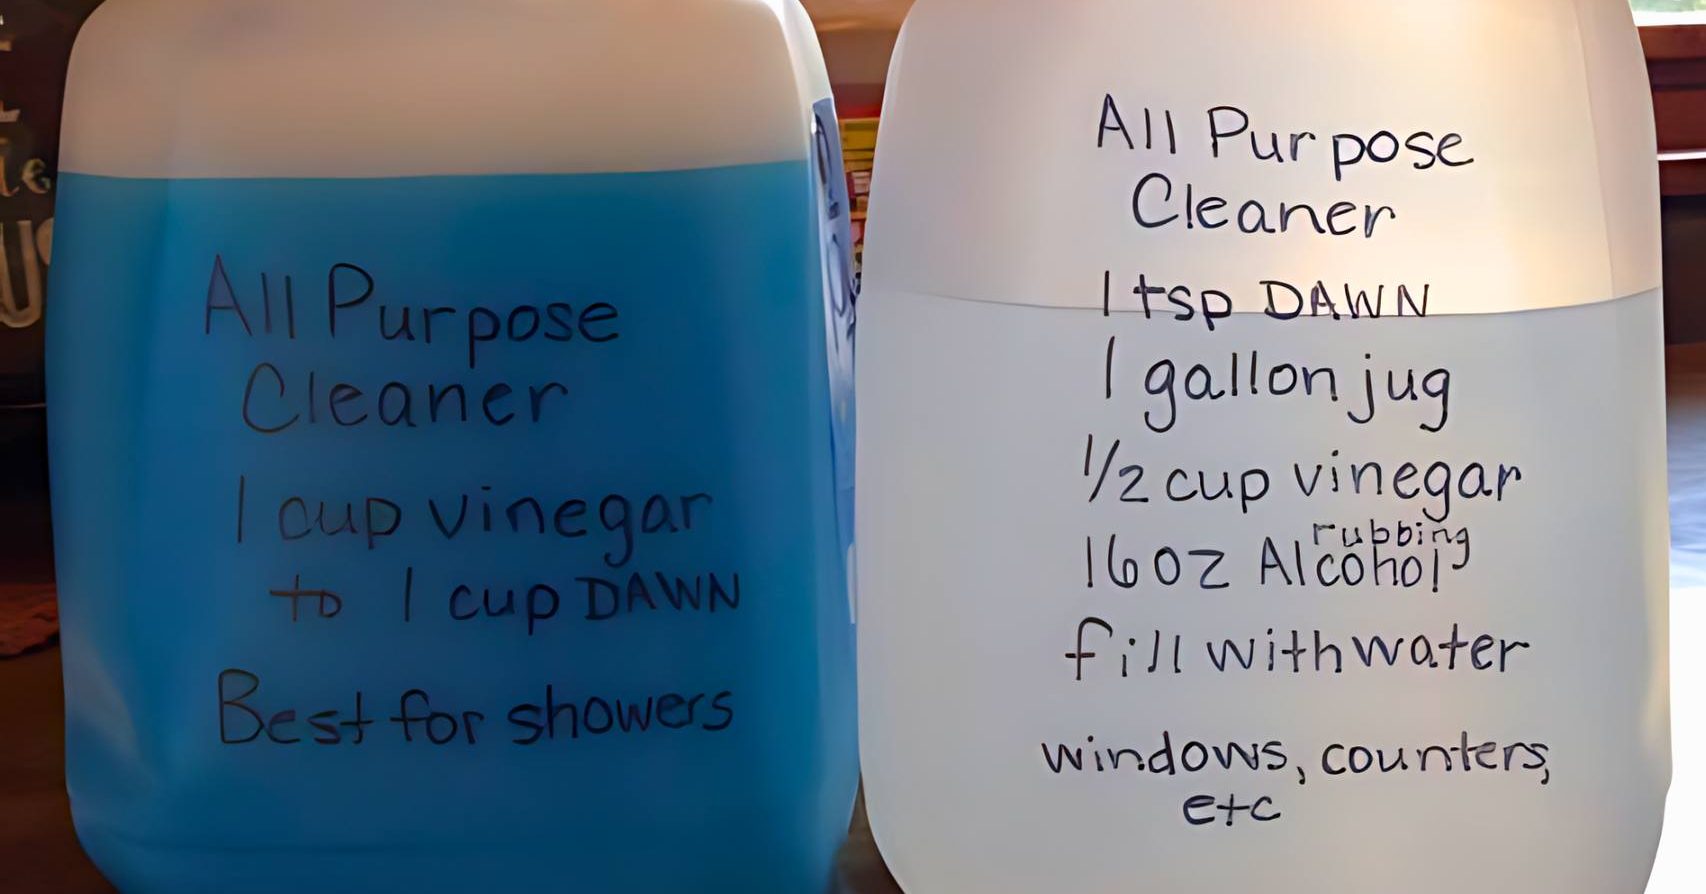 All Purpose
Cleaner
1 cup vinegar
to 1 cup DAWN
Best for showers
All Purpose
Cleaner
1 tsp DAWN
1 gallon jug
1/2 cup vinegar
rubbing
16oz Alcohol
fill with water
windows, counters,
etc